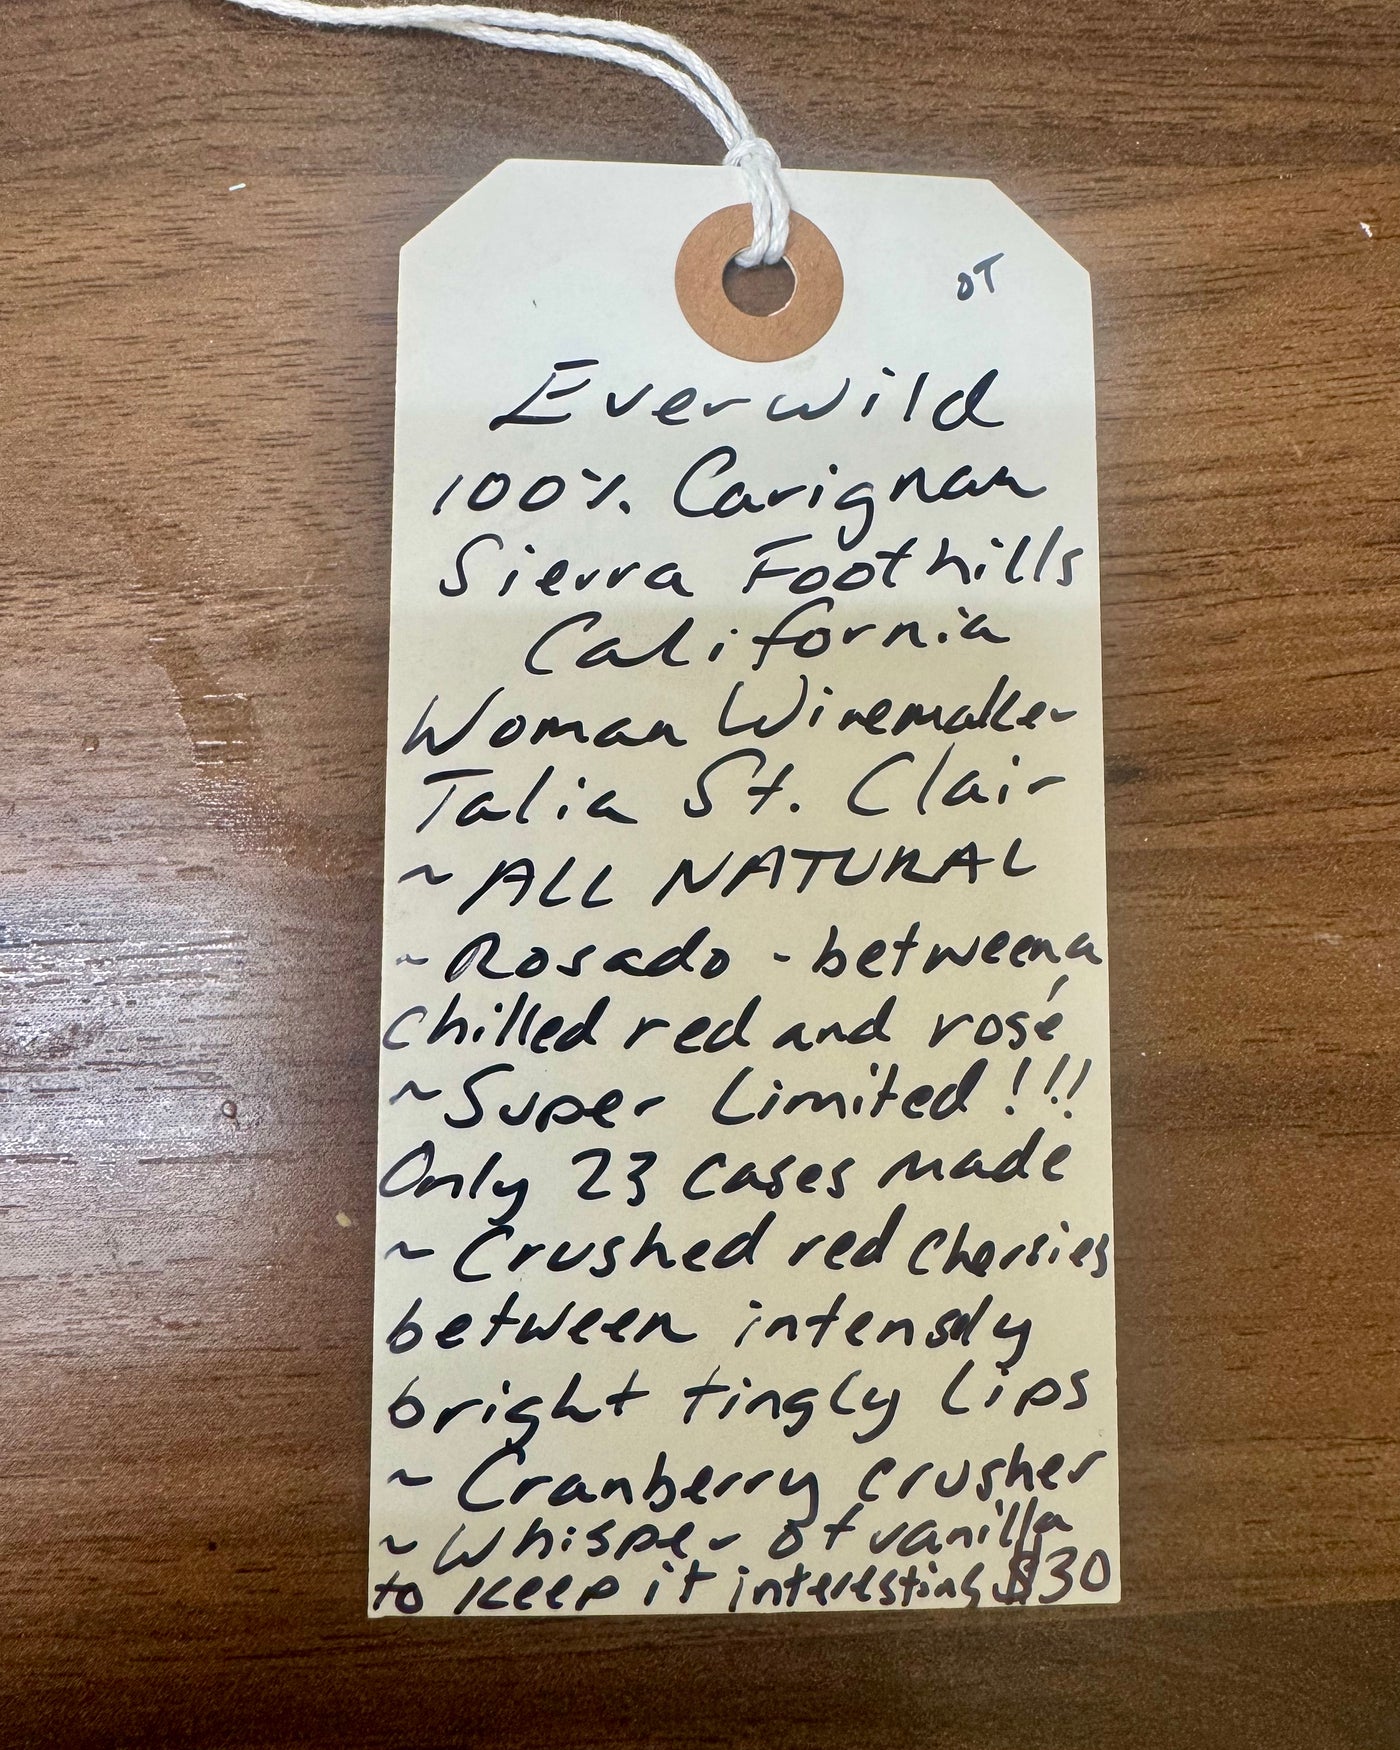 OT
Everwild
100% Carignan
Sierra Foothills
California
Woman Winemaker
Talia St. Clair
~ ALL NATURAL
~ Rosado - between a
chilled red and rosé
~ Super Limited!!!
Only 23 cases made
~ Crushed red cherries
between intensely
bright tingly lips
~ Cranberry crusher
~ Whisper of vanilla
to keep it interesting $30